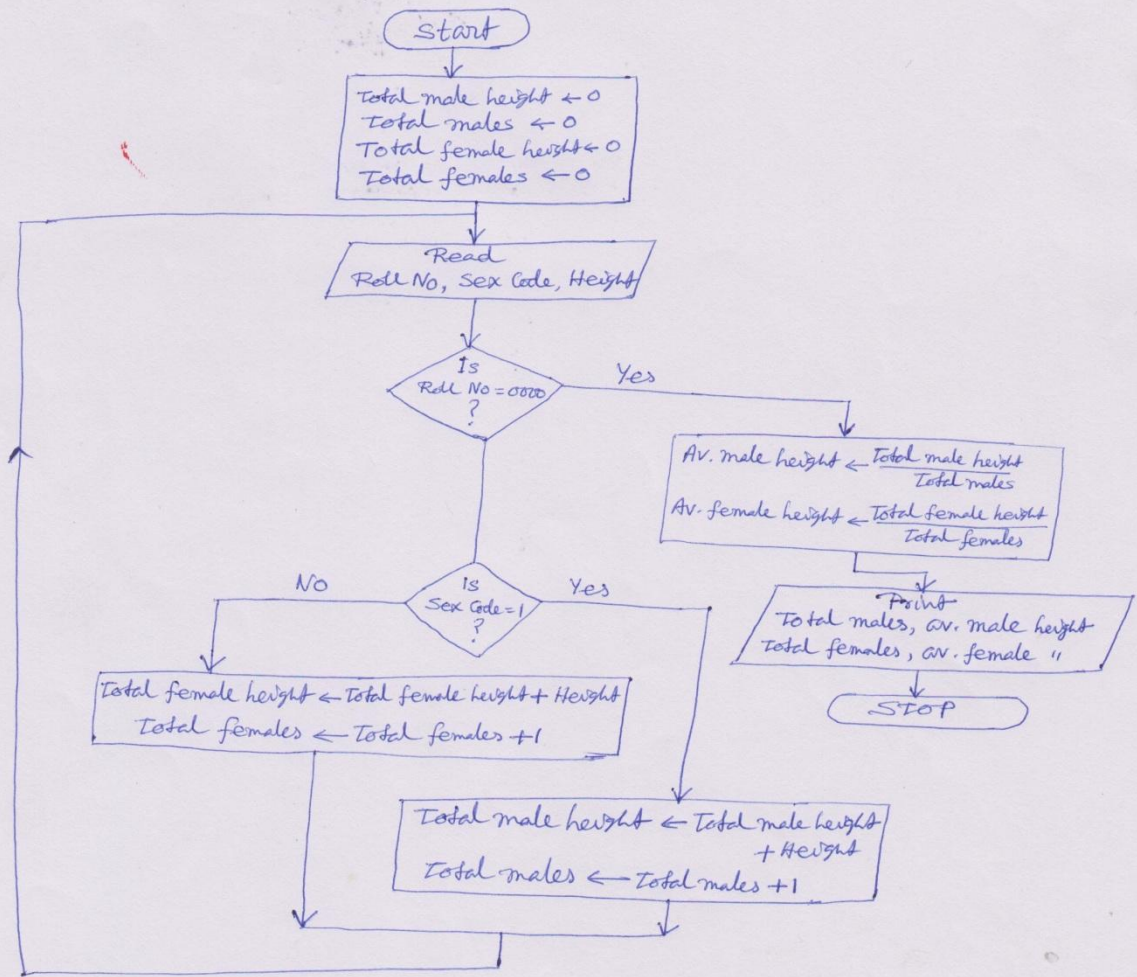 Start
Total male height ← 0
Total males ← 0
Total female height ← 0
Total females ← 0
Read
Roll No, Sex Code, Height
Is
Roll No = 0000
?
Yes
Av. male height ← Total male height
Total males
Av. female height ← Total female height
Total females
Print
Total males, av. male height
Total females, av. female "
STOP
Is
Sex Code = 1
?
No
Yes
Total female height ← Total female height + Height
Total females ← Total females + 1
Total male height ← Total male height
+ Height
Total males ← Total males + 1